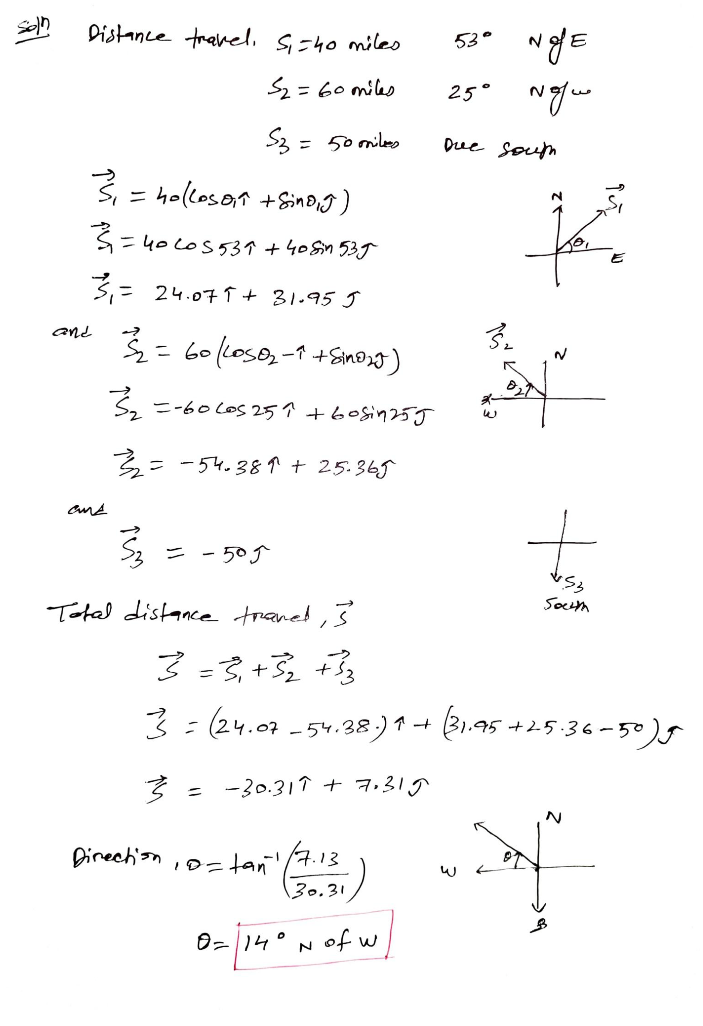 Soln Distance travel. S₁ = 40 miles 53° N of E
S₂ = 60 miles 25° N of w
S₃ = 50 miles Due South
S⃗₁ = 40(cosθ₁î + sinθ₁ĵ)
S⃗₁ = 40 cos53î + 40 sin 53ĵ
S⃗₁ = 24.07 î + 31.95 ĵ
N S⃗₁
θ₁ E
and S⃗₂ = 60(cosθ₂ -î + sinθ₂ĵ)
S⃗₂ = -60 cos 25 î + 60 sin25ĵ
S⃗₂ = -54.38 î + 25.36ĵ
S⃗₂ N
θ₂
W
and
S⃗₃ = -50ĵ
S₃
South
Total distance travel, S⃗
S⃗ = S⃗₁ + S⃗₂ + S⃗₃
S⃗ = (24.07 - 54.38.) î + (31.95 + 25.36 - 50)ĵ
S⃗ = -30.31î + 7.31ĵ
Direction, θ = tan⁻¹(7.13/30.31)
N
W θ
S
θ = 14° N of W